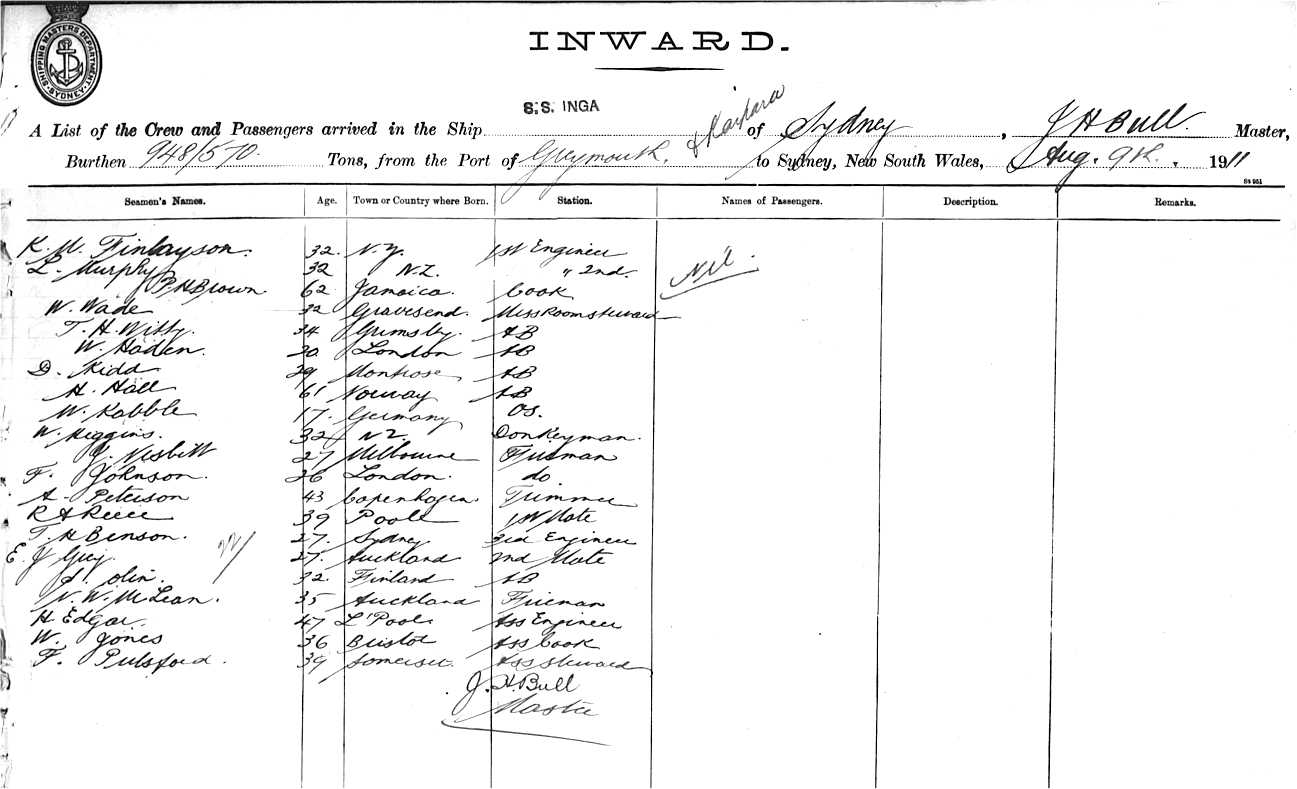 SHIPPING MASTERS DEPARTMENT
SYDNEY
INWARD.
S.S. INGA
A List of the Crew and Passengers arrived in the Ship & Kaipara of Sydney, J H Bull. Master,
Burthen 948/570. Tons, from the Port of Greymouth. to Sydney, New South Wales, Aug. 9th. 1911
Seamen's Names. Age. Town or Country where Born. Station. Names of Passengers. Description. Remarks.
K. M. Finlayson. 32. N.Z. 1st Engineer
L. Murphy 32 N.Z. " 2nd Nil.
P. H Brown 62 Jamaica. Cook
W. Wade 32 Gravesend. Messroom steward
T. H. Witty. 34 Grimsby. AB
W. Haden. 30 London AB
D. Kidd 29 Montrose, AB
H. Hall 61 Norway AB
W. Kabble 17. Germany OS.
W. Higgins. 32 NZ. Donkeyman.
J. Nisbitt 27 Melbourne Fireman
F. Johnson. 26 London. do
A. Peterson 43 Copenhagen. Trimmer
R A Reece 39 Poole 1st Mate
T. H Benson. 27. Sydney 3rd Engineer
E. J Grey. 27. Auckland 2nd Mate
olin. 32. Finland AB
N. W. McLean. 35 Auckland Fireman
H. Edgar. 47 L'Pool. Ass Engineer
W. Jones 36 Bristol Ass Cook
F. Pulsford. 39 Somerset. Ass Steward
J. H. Bull
Master